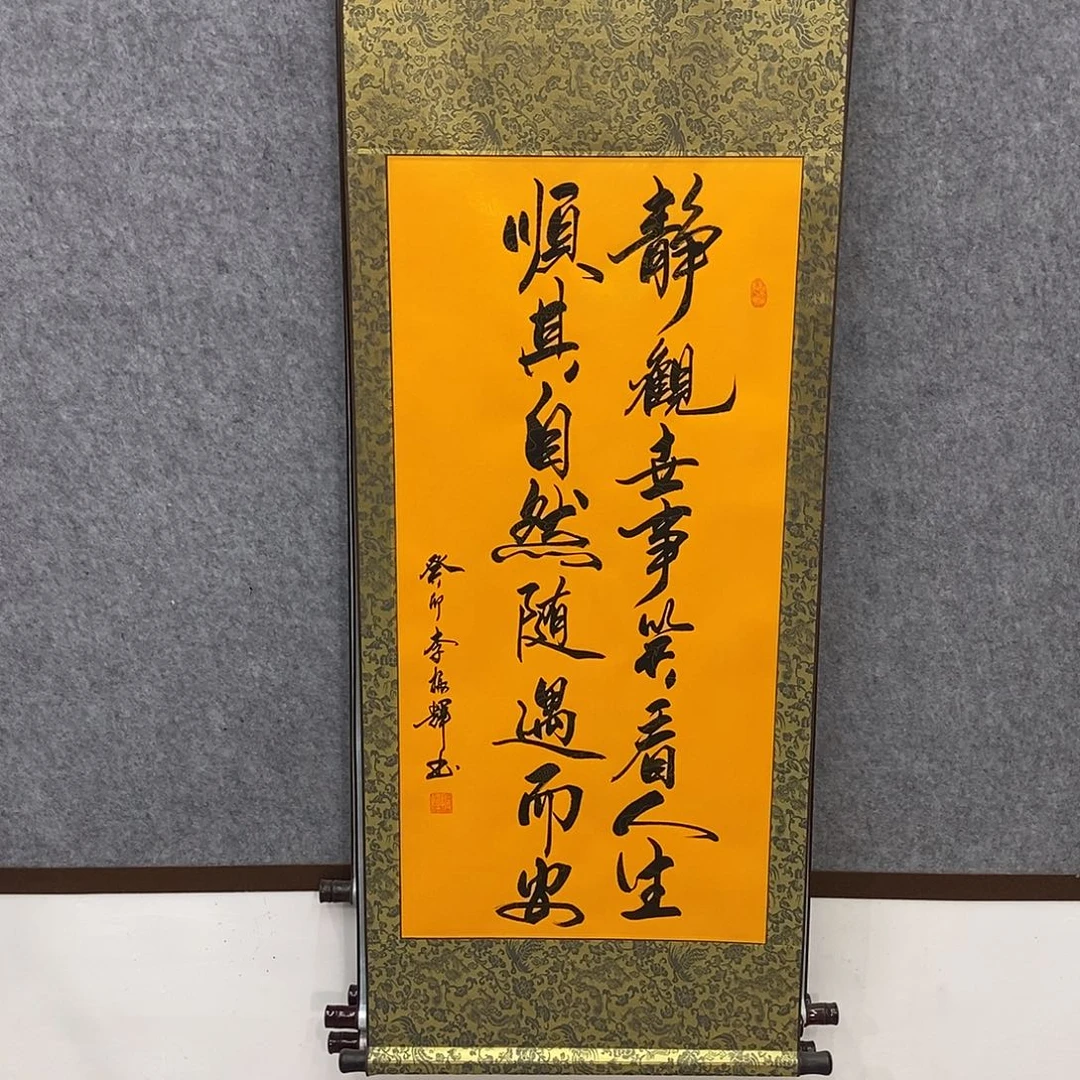 靜觀世事笑看人生
順其自然随遇而安
癸卯李振輝书